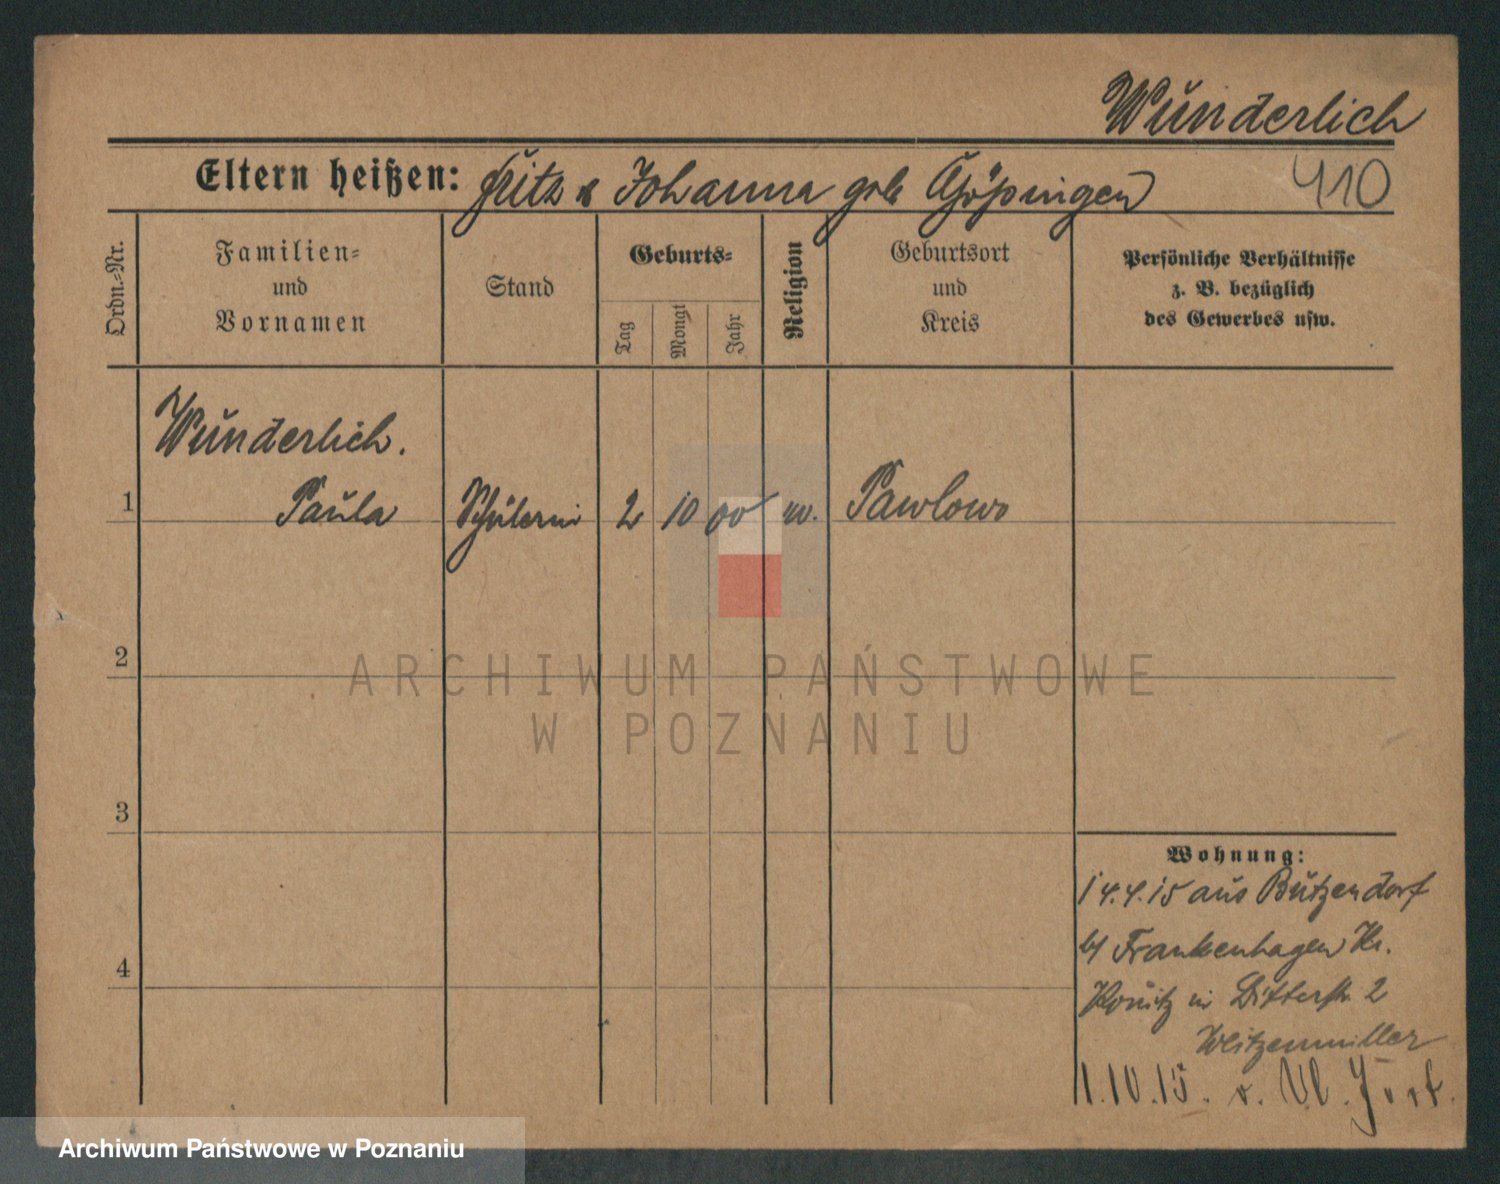 Wunderlich
Eltern heißen: Fritz & Johanna geb Göppingen
410
Ordn.-Nr.
Familien-
und
Vornamen
Stand
Geburts-
Tag
Monat
Jahr
Religion
Geburtsort
und
Kreis
Persönliche Verhältnisse
z. B. bezüglich
des Gewerbes usw.
Wunderlich.
1 Paula Schülerin 2 10 00 w. Pawlowo
2
3
4
Wohnung:
14.4.15 aus Bützendorf
b/ Frankenhagen Kr.
Konitz in Ritterstr. 2
1.10.15.
ARCHIWUM PAŃSTWOWE
W POZNANIU
Archiwum Państwowe w Poznaniu